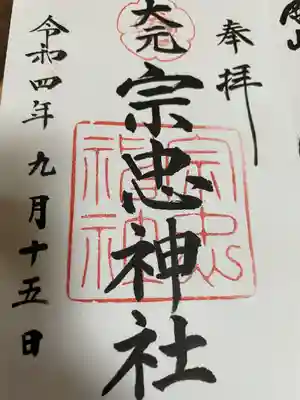 奉拝
大元
宗忠神社
宗忠
福神
令和四年九月十五日